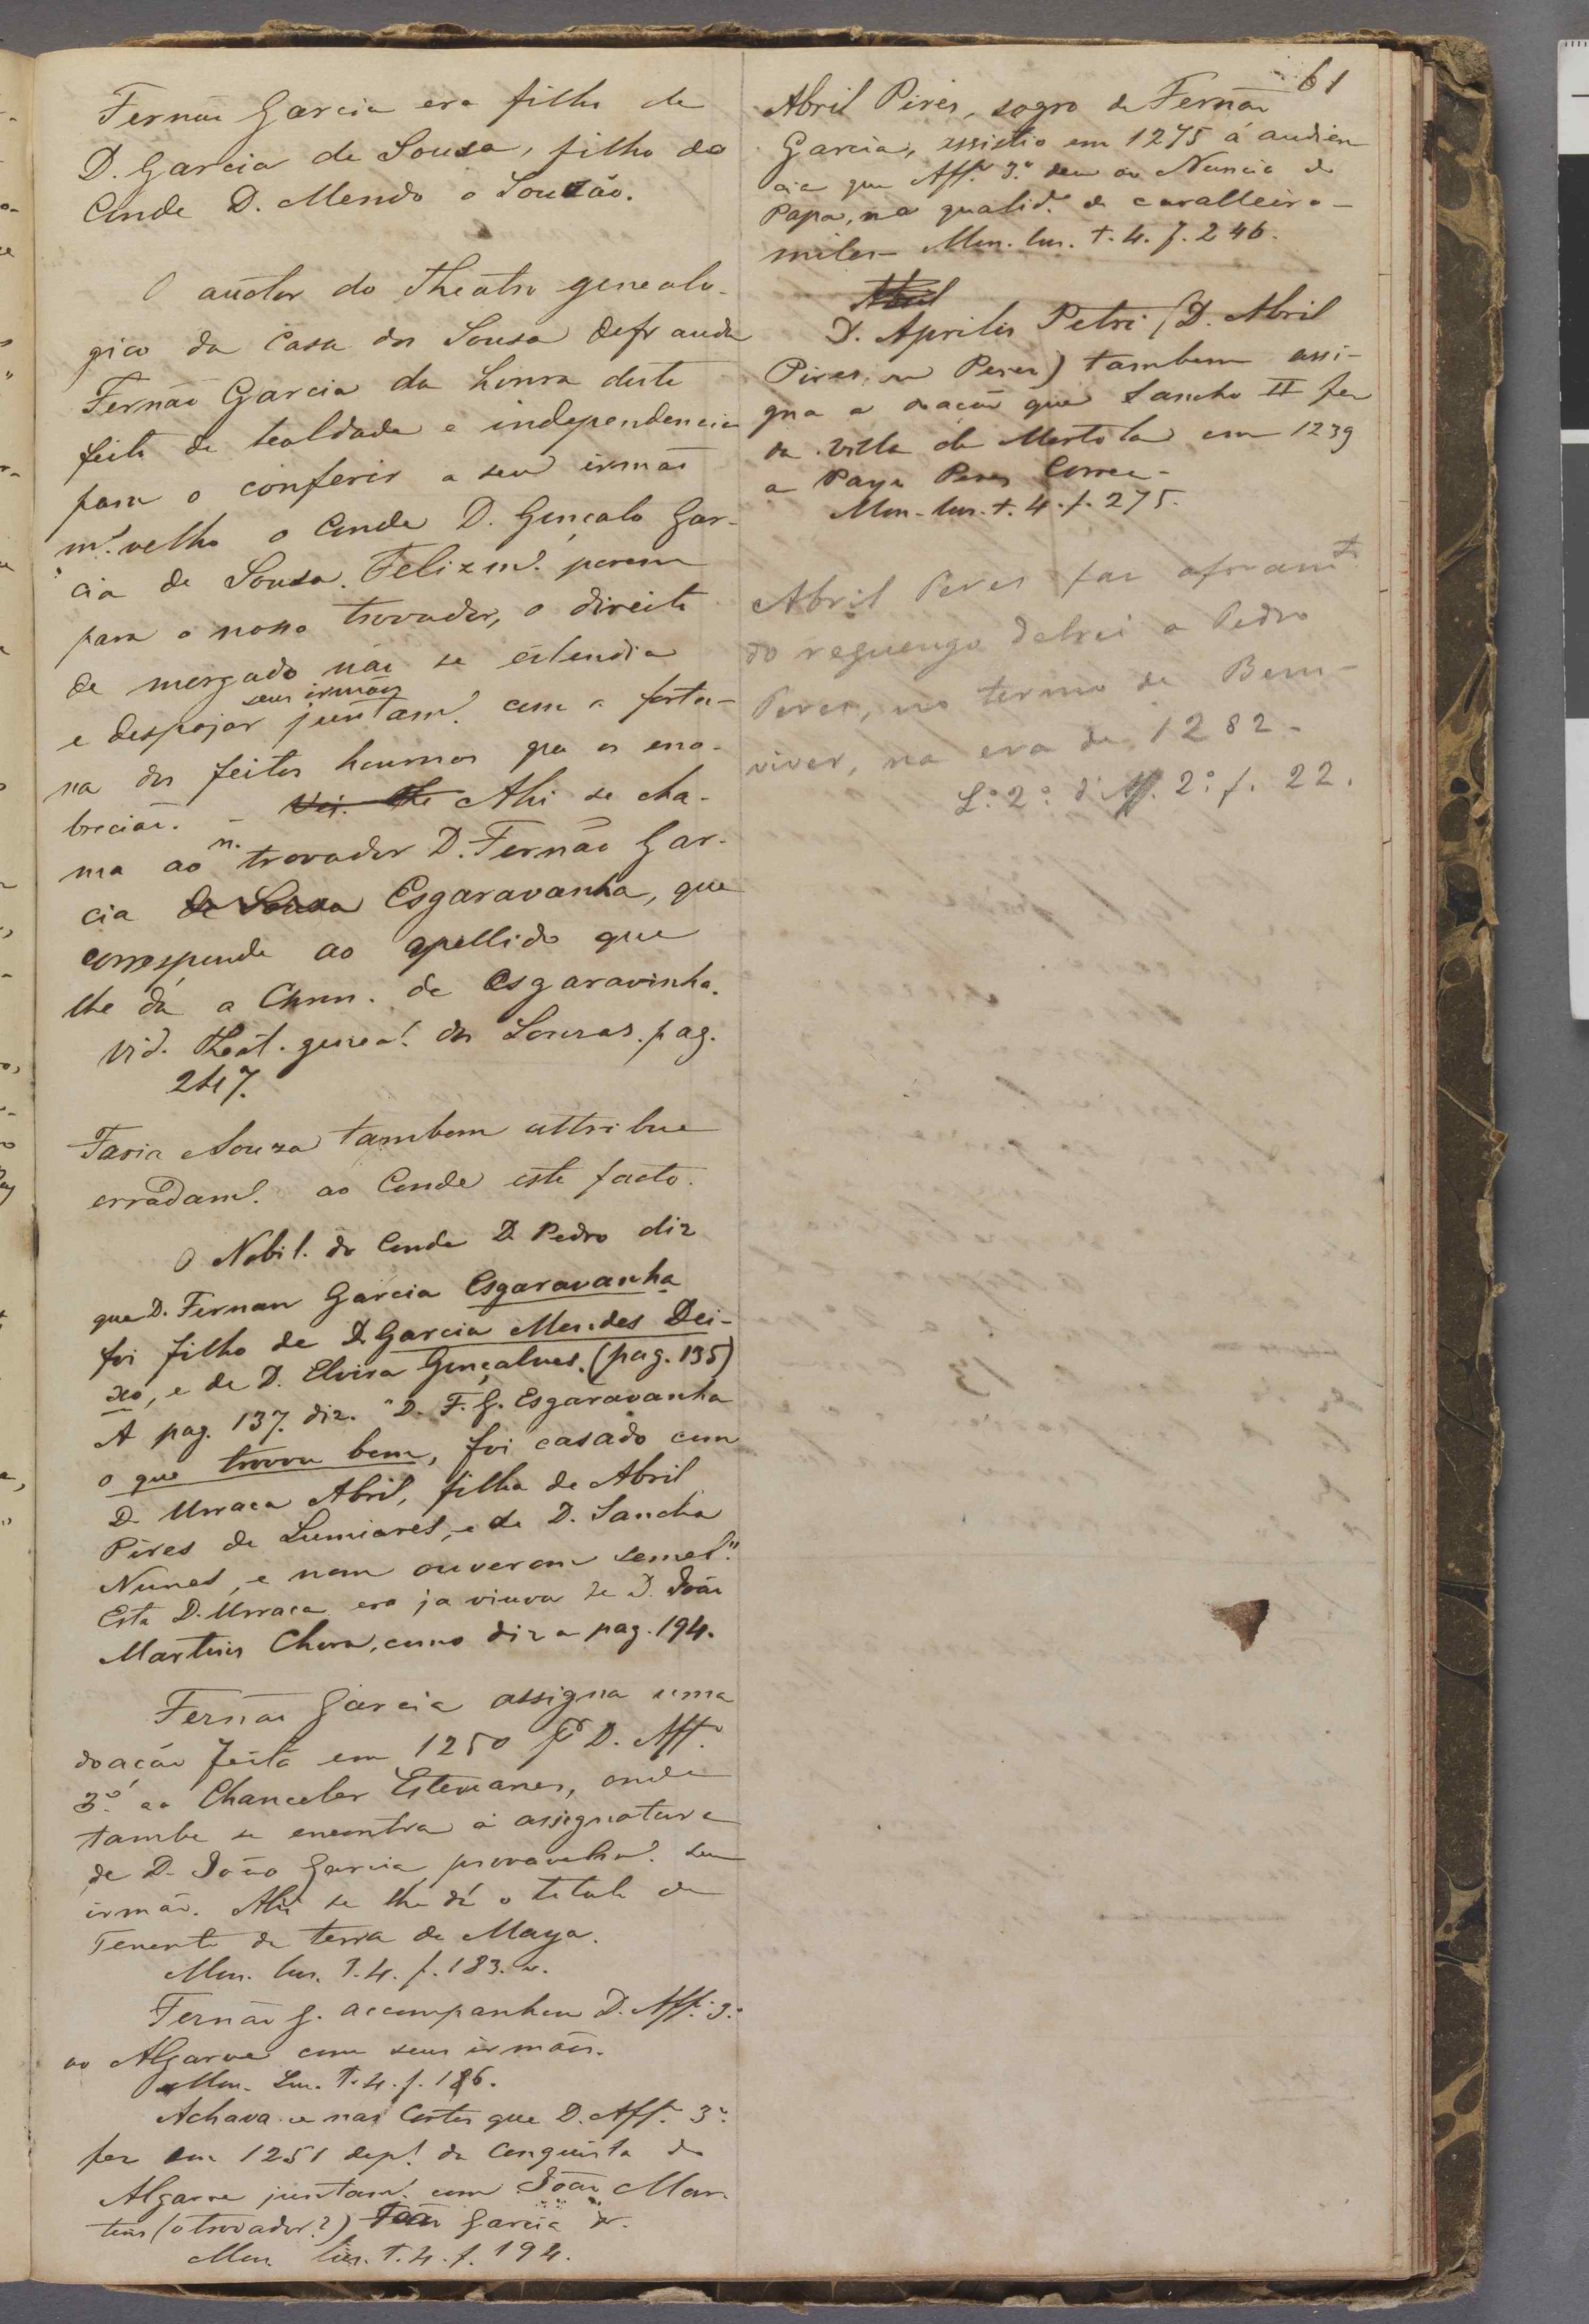 Fernão Garcia era filho de
D. Garcia de Sousa, filho do
Conde D. Mendo o Souzão.
O auctor do Theatro genealo-
gico da Casa dos Sousa defrauda
Fernão Garcia da honra deste
feito de lealdade e independencia
para o conferir a seu irmão
m.s velho o Conde D. Gonçalo Gar-
cia de Sousa. Felizm.e porem
para o nosso trovador, o direito
de morgado não se estendia
seus irmãos
e despojar juntam.e com a fortu-
na dos feitos houmos que os eno-
breciaõ. - Vej. the Ahi se cha-
ma ao n. trovador D. Fernão Gar-
cia de Sousa Esgaravanha, que
corresponde ao apellido que
lhe dá a Chron. de Esgaravinha.
Vid. Theat. geneal. dos Souzas. pag.
247.
Faria Souza tambem attribue
erradam.e ao Conde este facto.
O Nobil. do Conde D. Pedro diz
que D. Fernan Garcia Esgaravanha
foi filho de D. Garcia Mendes Dei-
xo, e de D. Elvira Gonçalves. (pag. 135)
A pag. 137. diz. "D. F. G. Esgaravanha
o que trovou bem, foi casado com
D. Urraca Abril, filha de Abril
Pires de Lumiares, e de D. Sancha
Nunes, e nom ouverom semel."
Esta D. Urraca era ja viuva de D. João
Martins Chora, como diz a pag. 194.
Fernão Garcia assigna uma
doação feita em 1250 p.r D. Aff.o
3.o ao Chanceler Estevanes, onde
tambe se encontra a assignatura
de D. João Garcia provavelm.e seu
irmão. Ahi se lhe dá o titulo de
Tenente da terra da Maya.
Mon. lus. T. 4. f. 183. v.
Fernão G. accompanhou D. Aff.o 3.o
ao Algarve com seus irmãos.
Mon. Lus. T. 4. f. 186.
Achava-se nas Cortes que D. Aff.o 3.o
fez em 1251 dep.s da conquista do
Algarve juntam.e com João Mar-
tins (o trovador?) João Garcia
Mon. lus. T. 4. f. 194.
61
Abril Pires, sogro de Fernão
Garcia, assistio em 1245 á audien
cia que Aff.o 3.o deu ao Nuncio do
Papa, na qualid.e de cavalleiro -
miles - Mon. lus. t. 4. f. 246.
Abril
D. Aprilis Petri (D. Abril
Pires, ou Peres) tambem assi-
gna a doação que Sancho II fez
da Villa de Mertola em 1239
a Payo Peres Correa -
Mon. lus. t. 4. f. 275.
Abril Peres faz aforam.to
do reguengo delrei a Pedro
Peres, no termo de Bem-
viver, na era de 1282 -
L.o 2.o d'Aff. 2.o f. 22.